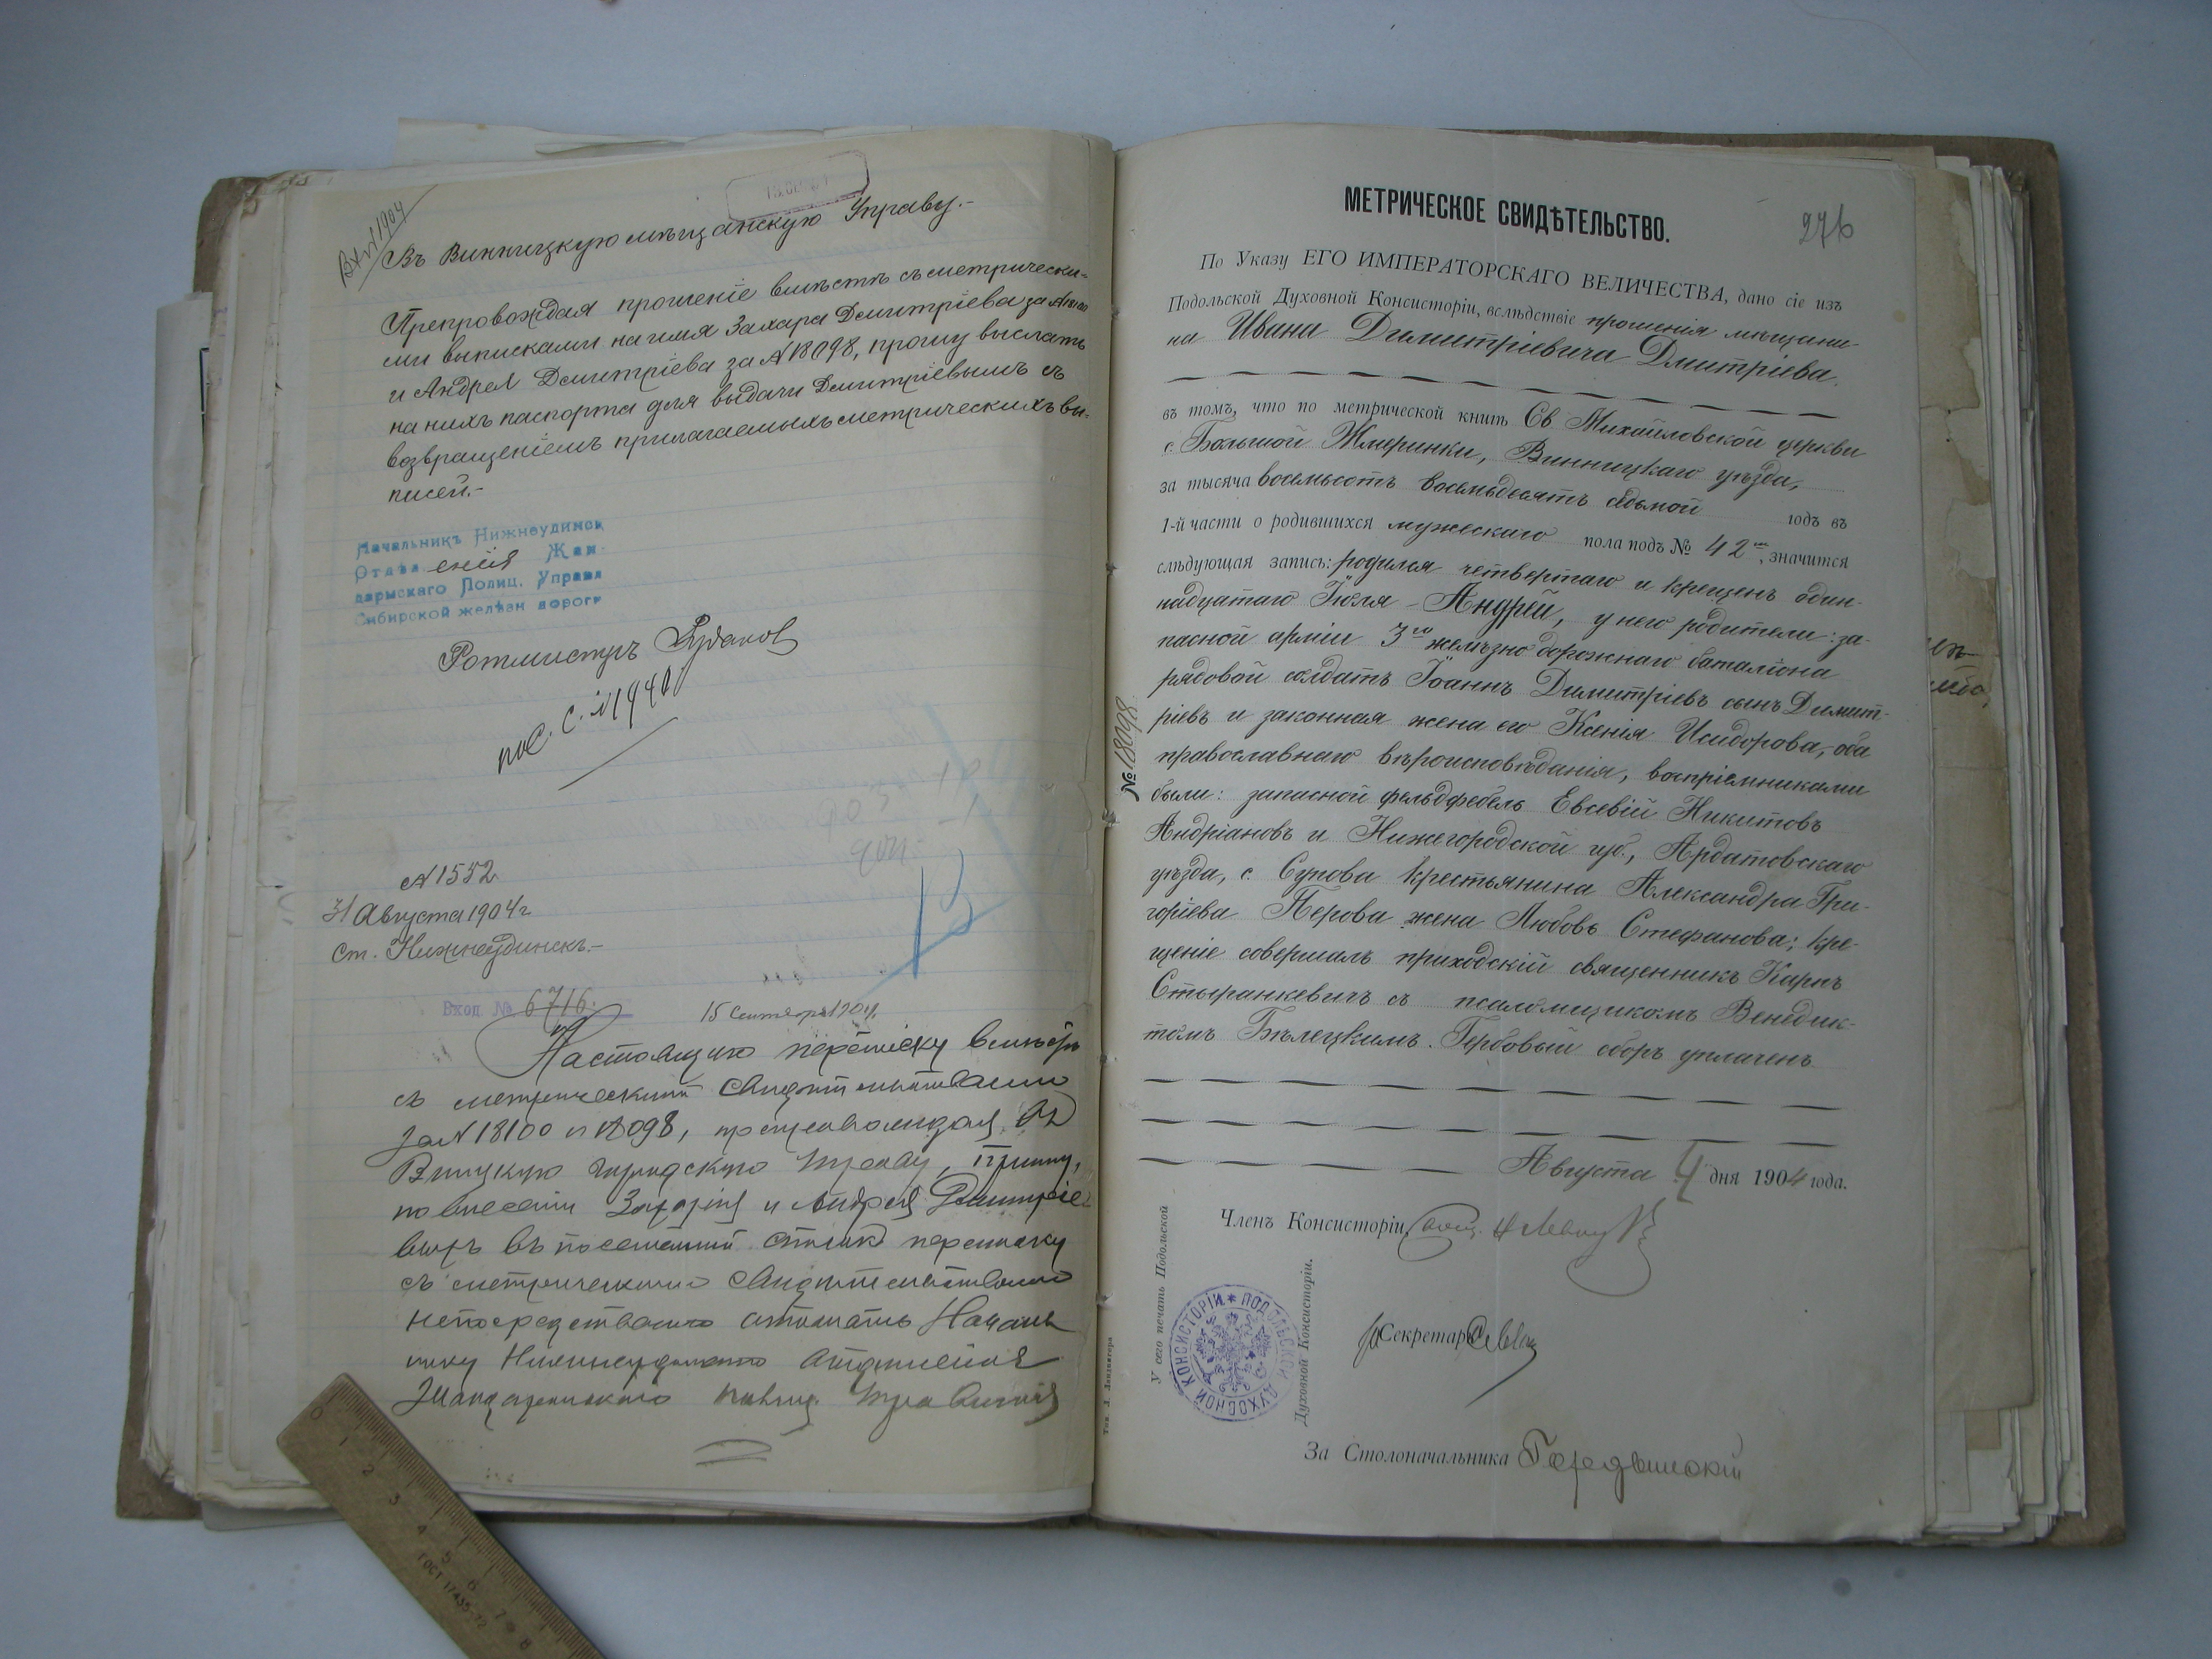 Вх№1904
Въ Винницкую мѣщанскую Управу.-
Препровождая прошеніе вмѣстѣ съ метрически=
ми выписками на имя Захара Дмитріева за №
и Андрея Дмитріева за №18098, прошу выслать
на нихъ паспорта для выдачи Дмитріевымъ съ
возвращеніемъ прилагаемыхъ метрическихъ вы-
писей.-
Начальникъ Нижнеудинск
Отдѣленія Жан
дармскаго Полиц. Управл
Сибирской желѣзн дороги
Ротмистръ Рудаковъ
№1552
31 Августа 1904 г
Ст. Нижнеудинскъ.-
Вход. № 6716.
15 Сентября 1904.
Настоящую переписку вмѣстѣ
съ метрическими свидѣтельствами
за №18100 и 18098, препровождая въ
Винницкую городскую Управу, прошу,
по внесеніи Захарія и Андрея Дмитріе
выхъ въ посемейный списокъ переписку
съ метрическими свидѣтельствами
непосредственно отослать Началь
нику Нижнеудинскаго отдѣленія
Жандармскаго полиц. Управленія
ГОСТ 17435-72
0 1 2 3 4 5 6 7 8
276
МЕТРИЧЕСКОЕ СВИДѢТЕЛЬСТВО.
По Указу ЕГО ИМПЕРАТОРСКАГО ВЕЛИЧЕСТВА, дано сіе изъ
Подольской Духовной Консисторіи, вслѣдствіе прошенія мѣщани-
на Ивана Димитріевича Дмитріева.
въ томъ, что по метрической книгѣ Св Михайловской церкви
с. Большой Жмеринки, Винницкаго уѣзда,
за тысяча восемьсотъ восемьдесятъ седьмой годъ въ
1-й части о родившихся мужескаго пола подъ № 42мъ, значится
слѣдующая запись: родился четвертаго и крещенъ один-
надцатаго Іюля – Андрей, у него родители: за-
пасной арміи 3го желѣзнодорожнаго баталіона
рядовой солдатъ Іоаннъ Димитріевъ сынъ Димит-
ріевъ и законная жена его Ксенія Исидорова, оба
православнаго вѣроисповѣданія, воспріемниками
были: запасной фельдфебель Евсевій Никитовъ
Андріановъ и Нижегородской губ., Ардатовскаго
уѣзда, с. Сунова крестьянина Александра Гри-
горіева Перова жена Любовь Стефанова; кре-
щеніе совершалъ приходскій священникъ Карпъ
Стыранкевичъ съ псаломщикомъ Венедик-
томъ Бѣлецкимъ. Гербовый сборъ уплаченъ
Августа 4 дня 1904 года.
№ 18098.
Членъ Консисторіи,
У сего печать Подольской
Духовной Консисторіи.
ПОДОЛЬСКОЙ ДУХОВНОЙ КОНСИСТОРІИ
Секретарь
За Столоначальника